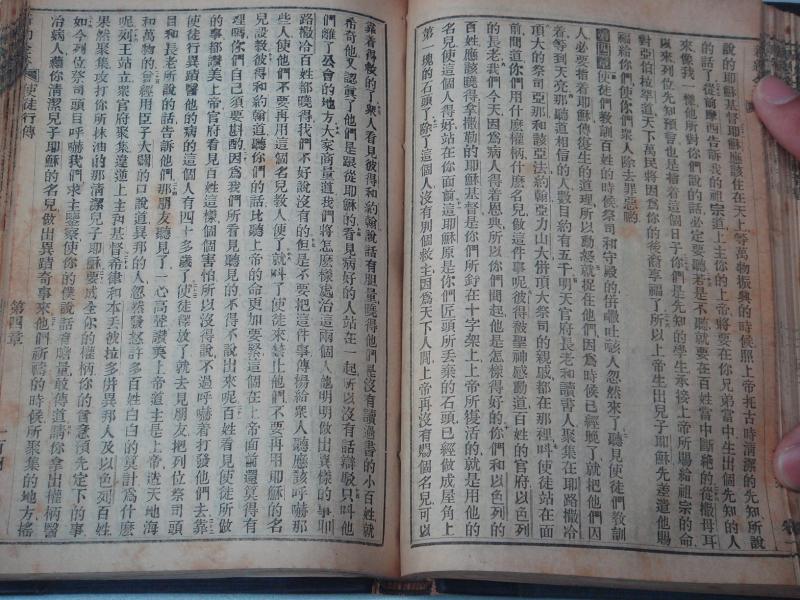 說的耶穌基督耶穌應該住在天上等萬物振興的時候照上帝托古時清潔的先知所說
的話了從前摩西告訴我的祖宗道上主你的上帝將要在你兄弟當中生出個先知的人
來像我一樣他所對你們說的話必定要聽若是不聽就要在百姓當中斷絕的從撒母耳
以來列位先知預言也是指着這個日子你們是先知的學生承接上帝所賜給祖宗的命
對亞伯拉罕道天下萬民將因為你的後裔享福了所以上帝生出兒子耶穌先差遣他賜
福給你們使你們衆人除去罪惡喲
第四章使徒們教訓百姓的時候祭司和守殿的併撒吐該人忽然來了聽見使徒們教訓
人必要指着耶穌傳復生的道理所以動起就捉住他們因為時候已經晚了就把他們囚
着等到天亮那聽道相信的人數目約有五千明天官府長老和讀書人聚集在耶路撒冷
頂大的祭司亞那和該亞法約翰亞力山大併頂大祭司的親戚都在那裡叫使徒站在面
前問道你們用什麼權柄什麼名兒做這件事呢彼得被聖神感動道百姓的官府以色列
的長老我們今天因為病人得着恩典所以你們問起他是怎樣得好的你們和以色列的
百姓應該曉得拿撒勒的耶穌基督是你們所釘在十字架上上帝所復活的就是用他的
名兒使這個人得好站在你面前這耶穌原是你們匠頭所丟棄的石頭已經做成屋角上
第一塊的石頭了除了這個人沒有別個救主因為天下人間上帝再沒有賜個名兒可以
靠着得救的了衆人看見彼得和約翰說話有胆量曉得他們是沒有讀過書的小百姓就
希奇他又認真了他們是跟從耶穌的看見病好的人站在一起所以沒有話辯駁只叫他
們離了公會的地方大家商量道我們將怎麼樣處治這兩個人他明明做出異樣的事叫
路撒冷百姓都曉得我們不好說沒有的但是不要把這件事傳揚給衆人聽應該呼嚇那
些人使他們不要再用這個名兒教人便了就叫了使徒來禁止他們不要再用耶穌的名
兒設教彼得和約翰道聽你們的話比聽上帝的命更加要緊這個在上帝面前還算得有
理嗎你們自己須要斟酌因為我們所看見聽見的不得不說出來呢百姓看見使徒所做
的事都讚美上帝官府看見百姓這樣個個害怕所以沒得說不過呼嚇着打發他們去靠
使徒行異蹟醫他的病的這個人有四十多歲了使徒釋放了就去見朋友把列位祭司頭
目和長老所說的話告訴他們那朋友聽見了一心高聲讚美上帝道主是上帝造天地海
和萬物的曾經用臣子大闢的口說道異邦的人忽然發怒許多百姓白白的莫計為什麼
呢列王站立衆官府聚集違逆上主和基督希律和本丟彼拉多併異邦人及以色列百姓
果然聚集攻打你所抹油的那清潔兒子耶穌要成全你的權柄你的旨意預先定下的事
如今列位祭司頭目呼嚇我們求主鑒察使你的僕說話有胆量敢傳道請你拿出權柄醫
治病人藉你清潔兒子耶穌的名兒做出異蹟奇事來他們祈禱的時候所聚集的地方搖
使徒行傳
第四章